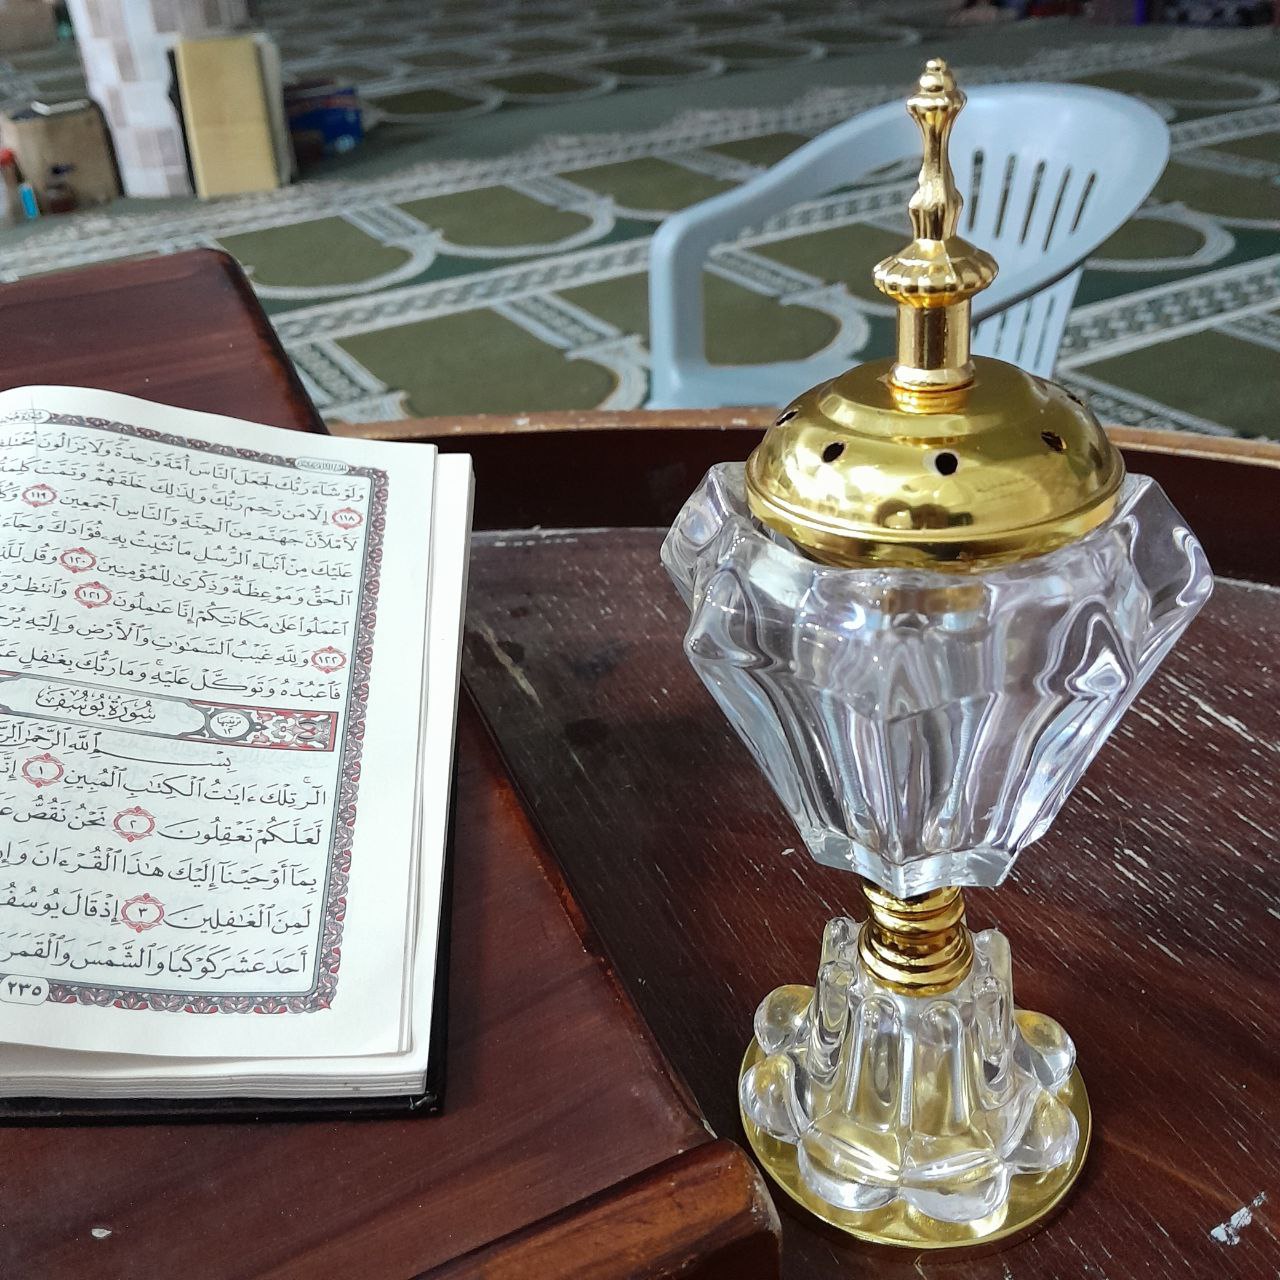 وَلَوْ شَآءَ رَبُّكَ لَجَعَلَ ٱلنَّاسَ أُمَّةً وَٰحِدَةً وَلَا يَزَالُونَ
١١٨ إِلَّا مَن رَّحِمَ رَبُّكَ وَلِذَٰلِكَ خَلَقَهُمْ وَتَمَّتْ كَلِمَةُ
لَأَمْلَأَنَّ جَهَنَّمَ مِنَ ٱلْجِنَّةِ وَٱلنَّاسِ أَجْمَعِينَ ١١٩
عَلَيْكَ مِنْ أَنۢبَآءِ ٱلرُّسُلِ مَا نُثَبِّتُ بِهِۦ فُؤَادَكَ وَجَآءَ
ٱلْحَقُّ وَمَوْعِظَةٌ وَذِكْرَىٰ لِلْمُؤْمِنِينَ ١٢٠ وَقُل
ٱعْمَلُوا۟ عَلَىٰ مَكَانَتِكُمْ إِنَّا عَٰمِلُونَ ١٢١ وَٱنتَظِرُوٓا۟
١٢٢ وَلِلَّهِ غَيْبُ ٱلسَّمَٰوَٰتِ وَٱلْأَرْضِ وَإِلَيْهِ
فَٱعْبُدْهُ وَتَوَكَّلْ عَلَيْهِ وَمَا رَبُّكَ بِغَٰفِلٍ
سُورَةُ يُوسُفَ
بِسْمِ ٱللَّهِ ٱلرَّحْمَٰنِ
الٓر تِلْكَ ءَايَٰتُ ٱلْكِتَٰبِ ٱلْمُبِينِ ١
لَّعَلَّكُمْ تَعْقِلُونَ ٢ نَحْنُ نَقُصُّ
بِمَآ أَوْحَيْنَآ إِلَيْكَ هَٰذَا ٱلْقُرْءَانَ
لَمِنَ ٱلْغَٰفِلِينَ ٣ إِذْ قَالَ يُوسُفُ
أَحَدَ عَشَرَ كَوْكَبًا وَٱلشَّمْسَ وَٱلْقَمَرَ
٢٣٥